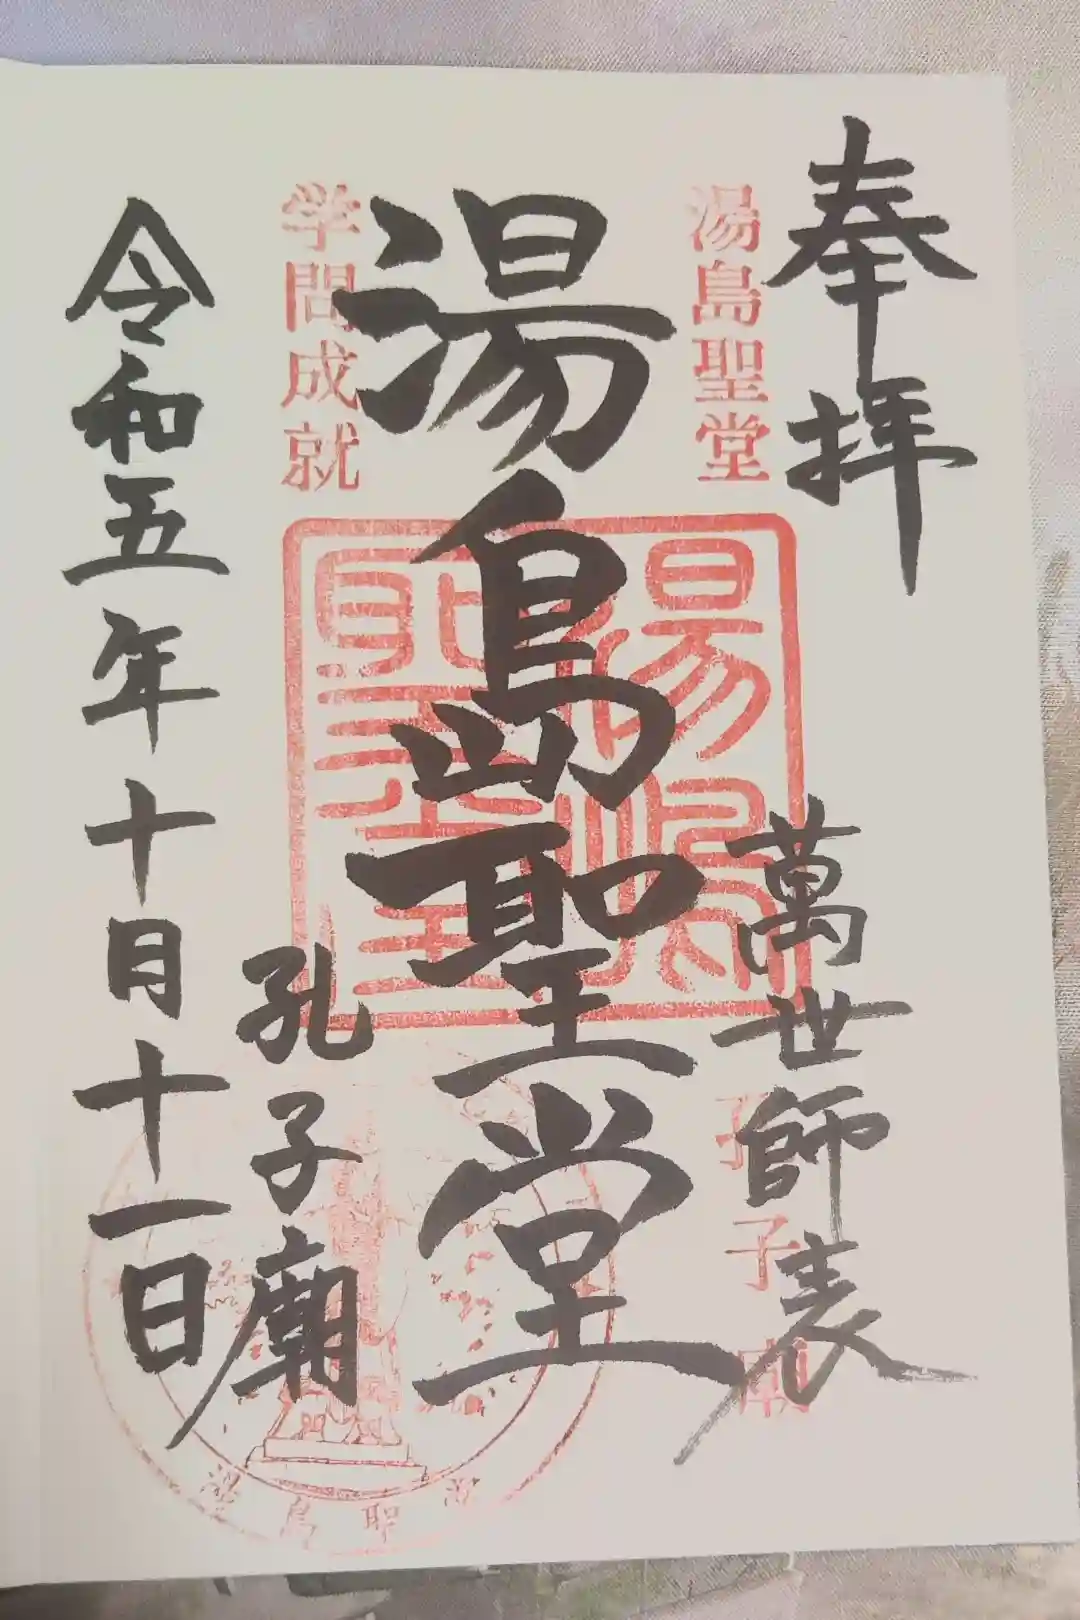 奉拝
湯島聖堂
萬世師表
孔子廟
湯島聖堂
湯島聖堂
学問成就
孔子廟
令和五年十月十一日
湯島聖堂